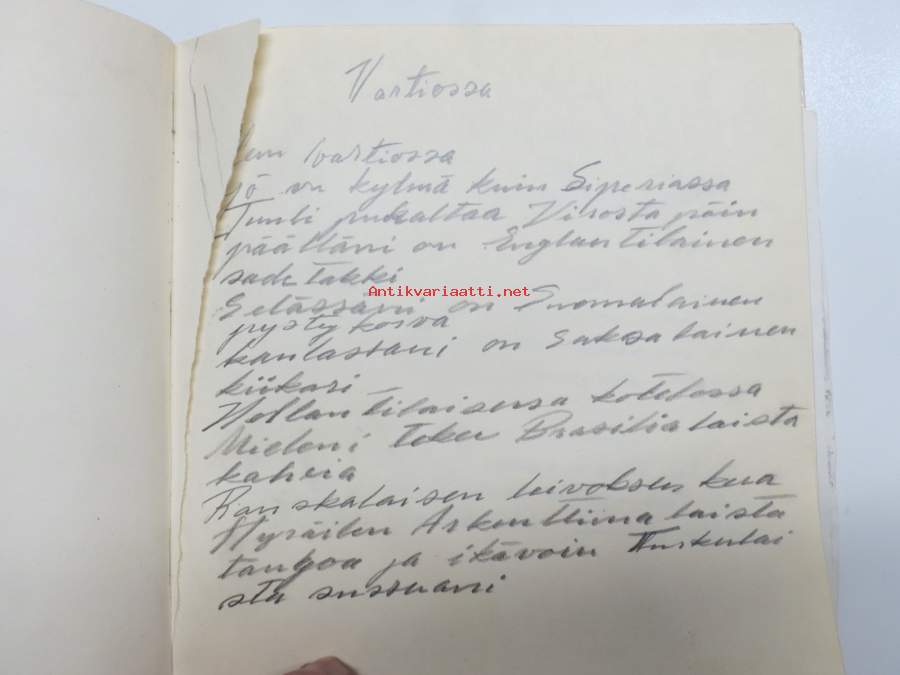 Vartiossa
len vartiossa
yö on kylmä kuin Siperiassa
Tuuli puhaltaa Virosta päin
päälläni on Englantilainen
sadetakki
Edessäni on Suomalainen
pystykorva
kaulassani on Saksalainen
kiikari
Hollantilaisessa kotelossa
Mieleni tekee Brasilialaista
kahvia
Ranskalaisen leivoksen kera
Hyräilen Arkenttiinalaista
tangoa ja ikävoin Turkulai
sta sussuani
Antikvariaatti.net